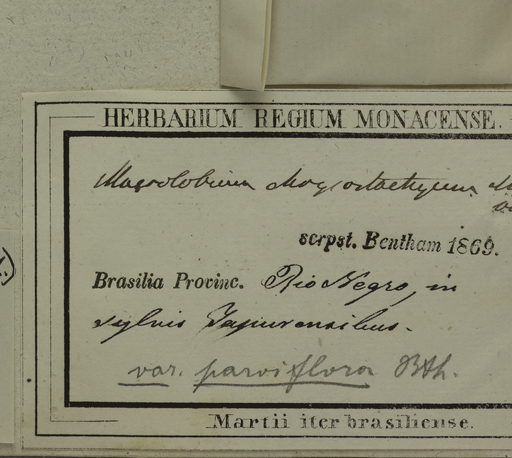 HERBARIUM REGIUM MONACENSE.
Macrolobium
scrpst. Bentham 1869.
Brasilia Provinc. Rio Negro, in
sylvis Japurensibus.
var. parviflora Bth.
Martii iter brasiliense.